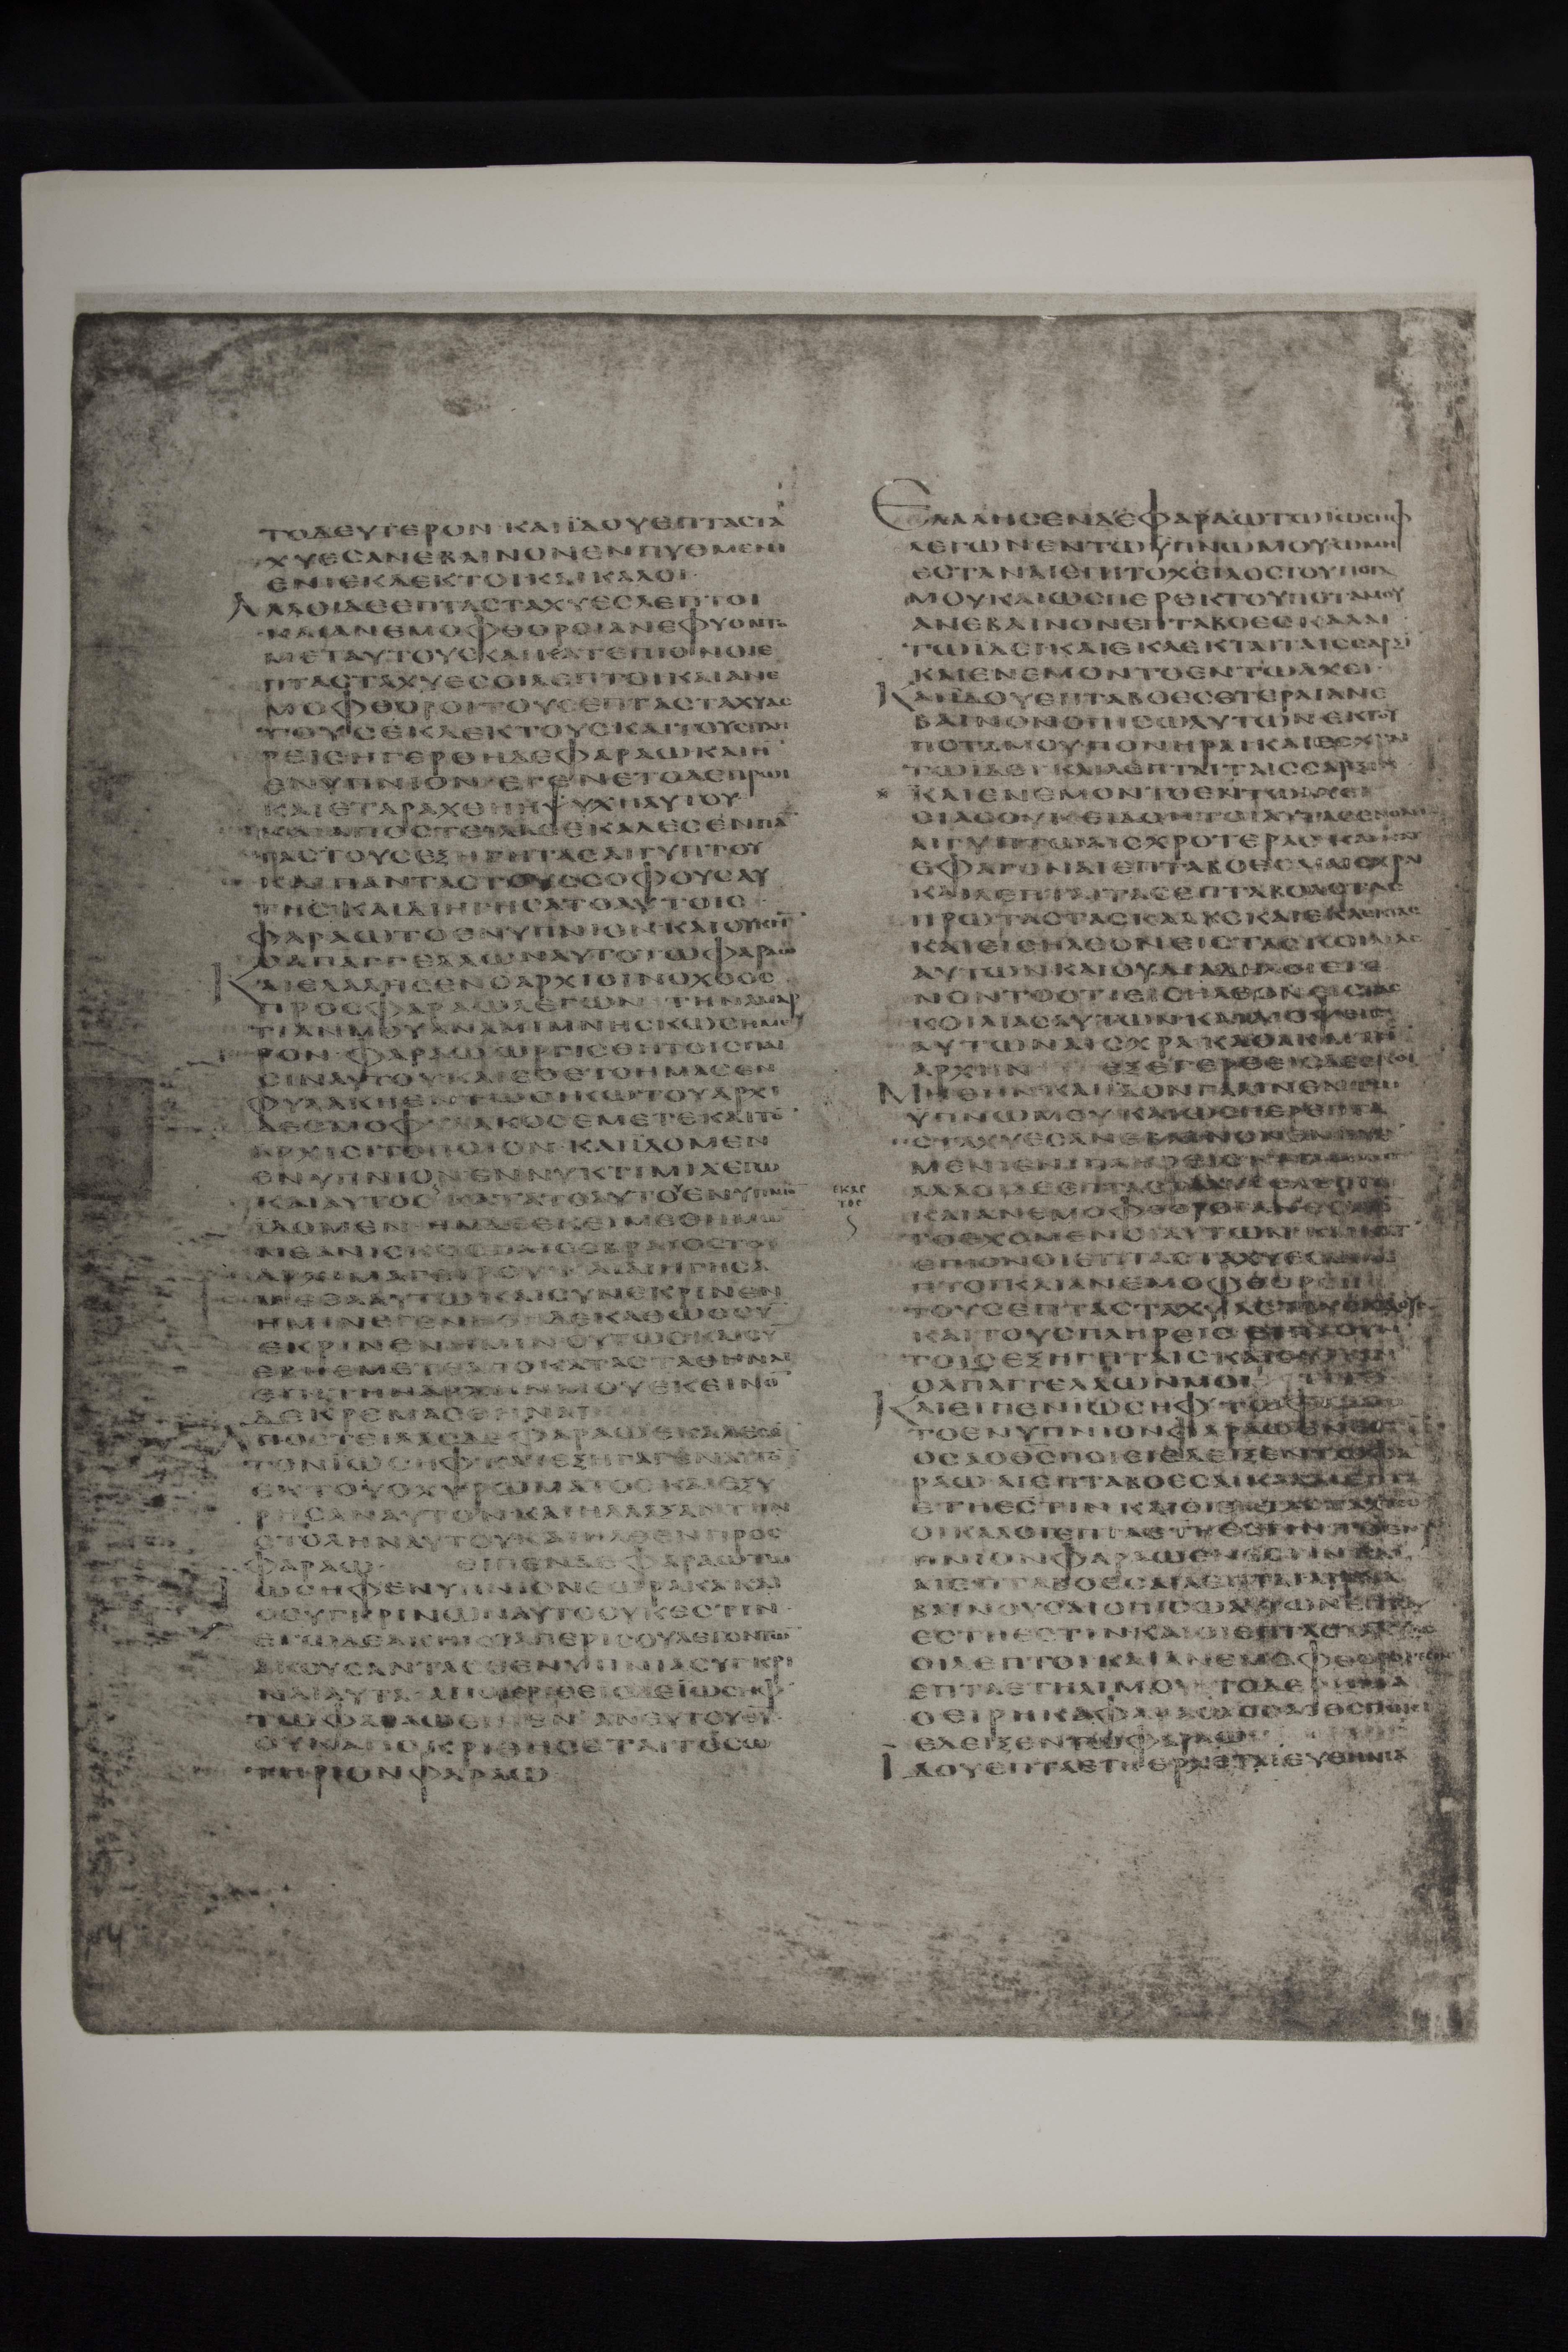 ΤΟΔΕΥΤΕΡΟΝ ΚΑΙΪΔΟΥΕΠΤΑСΤΑ
ΧΥΕСΑΝΕΒΑΙΝΟΝΕΝΠΥΘΜΕΝΙ
ΕΝΙΕΚΛΕΚΤΟΙΚΑΙΚΑΛΟΙ
ΑΛΛΟΙΔΕΕΠΤΑСΤΑΧΥΕСΛΕΠΤΟΙ
ΚΑΙΑΝΕΜΟΦΘΟΡΟΙΑΝΕΦΥΟΝΤΟ
ΜΕΤΑΥΤΟΥСΚΑΙΚΑΤΕΠΙΟΝΟΙΕ
ΠΤΑСΤΑΧΥΕСΟΙΛΕΠΤΟΙΚΑΙΑΝΕ
ΜΟΦΘΟΡΟΙΤΟΥСΕΠΤΑСΤΑΧΥΑС
ΤΟΥСΕΚΛΕΚΤΟΥСΚΑΙΤΟΥСΠΛΗ
ΡΕΙСΗΓΕΡΘΗΔΕΦΑΡΑΩΚΑΙΗ
ΕΝΥΠΝΙΟΝ ΕΓΕΝΕΤΟΔΕΠΡΩΙ
ΚΑΙΕΤΑΡΑΧΘΗΗΨΥΧΗΑΥΤΟΥ
ΚΑΙΑΠΟСΤΕΙΛΑСΕΚΑΛΕСΕΝΠΑ
ΤΑСΤΟΥСΕΞΗΓΗΤΑСΑΙΓΥΠΤΟΥ
ΚΑΙΠΑΝΤΑСΤΟΥССΟΦΟΥСΑΥ
ΤΗС ΚΑΙΔΙΗΓΗСΑΤΟΑΥΤΟΙС
ΦΑΡΑΩΤΟΕΝΥΠΝΙΟΝ ΚΑΙΟΥΚΗ
ΟΑΠΑΓΓΕΛΛΩΝΑΥΤΟΤΩΦΑΡΑΩ
ΚΑΙΕΛΑΛΗСΕΝΟΑΡΧΙΟΙΝΟΧΟΟС
ΠΡΟСΦΑΡΑΩΛΕΓΩΝ ΤΗΝΑΜΑΡ
ΤΙΑΝΜΟΥΑΝΑΜΙΜΝΗСΚΩСΗΜΕ
ΡΟΝ ΦΑΡΑΩΩΡΓΙСΘΗΤΟΙСΠΑΙ
СΙΝΑΥΤΟΥΚΑΙΕΘΕΤΟΗΜΑСΕΝ
ΦΥΛΑΚΗΕΝΤΩΟΙΚΩΤΟΥΑΡΧΙ
ΔΕСΜΟΦΥΛΑΚΟСΕΜΕΤΕΚΑΙΤΟ
ΑΡΧΙСΙΤΟΠΟΙΟΝ ΚΑΙΪΔΟΜΕΝ
ΕΝΥΠΝΙΟΝΕΝΝΥΚΤΙΜΙΑΕΓΩ
ΚΑΙΑΥΤΟС ΚΑΤΑΤΟΑΥΤΟΕΝΥΠΝΙΟ
ΕΚΑС
ΤΟС
ΪΔΟΜΕΝ ΗΝΔΕΕΚΕΙΜΕΘΗΜΩ
ΝΕΑΝΙСΚΟСΠΑΙСΕΒΡΑΙΟСΤΟΥ
ΑΡΧΙΜΑΓΕΙΡΟΥ ΚΑΙΔΙΗΓΗСΑ
ΜΕΘΑΑΥΤΩΚΑΙСΥΝΕΚΡΙΝΕΝ
ΗΜΙΝΕΓΕΝΗΘΗΔΕΚΑΘΩССΥ
ΕΚΡΙΝΕΝΗΜΙΝΟΥΤΩСΚΑΙСΥ
ΕΒΗΕΜΕΤΕΑΠΟΚΑΤΑСΤΑΘΗΝΑΙ
ΕΠΙΤΗΝΑΡΧΗΝΜΟΥΕΚΕΙΝΟ
ΔΕΚΡΕΜΑСΘΗΝΑΙ
ΑΠΟСΤΕΙΛΑСΔΕΦΑΡΑΩΕΚΑΛΕСΕ
ΤΟΝΪΩСΗΦΚΑΙΕΞΗΓΑΓΕΝΑΥΤΟ
ΕΚΤΟΥΟΧΥΡΩΜΑΤΟС ΚΑΙΕΞΥ
ΡΗСΑΝΑΥΤΟΝΚΑΙΗΛΛΑΞΑΝΤΗΝ
СΤΟΛΗΝΑΥΤΟΥΚΑΙΗΛΘΕΝΠΡΟС
ΦΑΡΑΩ ΕΙΠΕΝΔΕΦΑΡΑΩΤΩ
ΙΩСΗΦΕΝΥΠΝΙΟΝΕΩΡΑΚΑΚΑΙ
ΟСΥΓΚΡΙΝΩΝΑΥΤΟΟΥΚΕСΤΙΝ
ΕΓΩΔΕΑΚΗΚΟΑΠΕΡΙСΟΥΛΕΓΟΝΤΩ
ΑΚΟΥСΑΝΤΑСΕΕΝΥΠΝΙΑСΥΓΚΡΙ
ΝΑΙΑΥΤΑ ΑΠΟΚΡΙΘΕΙСΔΕΪΩСΗΦ
ΤΩΦΑΡΑΩΕΙΠΕΝ ΑΝΕΥΤΟΥΘΥ
ΟΥΚΑΠΟΚΡΙΘΗСΕΤΑΙΤΟСΩ
ΤΗΡΙΟΝΦΑΡΑΩ
ΕΛΑΛΗСΕΝΔΕΦΑΡΑΩΤΩΪΩСΗΦ
ΛΕΓΩΝΕΝΤΩΥΠΝΩΜΟΥΩΜΗ
ΕСΤΑΝΑΙΕΠΙΤΟΧΕΙΛΟСΤΟΥΠΟΤΑ
ΜΟΥΚΑΙΩСΠΕΡΕΚΤΟΥΠΟΤΑΜΟΥ
ΑΝΕΒΑΙΝΟΝΕΠΤΑΒΟΕСΚΑΛΑΙ
ΤΩΙΔΕΙΚΑΙΕΚΛΕΚΤΑΙΤΑΙССΑΡΞΙ
ΚΑΙΕΝΕΜΟΝΤΟΕΝΤΩΑΧΕΙ
ΚΑΙΪΔΟΥΕΠΤΑΒΟΕСΕΤΕΡΑΙΑΝΕ
ΒΑΙΝΟΝΟΠΙСΩΑΥΤΩΝΕΚΤΟΥ
ΠΟΤΑΜΟΥΠΟΝΗΡΑΙΚΑΙΕСΧΡΑΙ
ΤΩΙΔΕΙΚΑΙΛΕΠΤΑΙΤΑΙССΑΡΞΙΝ
ΚΑΙΕΝΕΜΟΝΤΟΕΝΤΩΑΧΕΙ
ΟΙΑСΟΥΚΕΙΔΟΝΤΟΙΑΥΤΑСΕΝΟΛΗ
ΑΙΓΥΠΤΩΑΙСΧΡΟΤΕΡΑСΚΑΙΚΑΤ
ΕΦΑΓΟΝΑΙΕΠΤΑΒΟΕСΑΙΑΙСΧΡΑΙ
ΚΑΙΛΕΠΤΑΙΤΑСΕΠΤΑΒΟΑСΤΑС
ΠΡΩΤΑСΤΑСΚΑΛΑСΚΑΙΕΚΛΕΚΤΑС
ΚΑΙΕΙСΗΛΘΟΝΕΙСΤΑСΚΟΙΛΙΑС
ΑΥΤΩΝΚΑΙΟΥΔΙΑΔΗΛΟΙΕΓΕ
ΝΟΝΤΟΟΤΙΕΙСΗΛΘΟΝΕΙСΤΑС
ΚΟΙΛΙΑСΑΥΤΩΝΚΑΙΑΙΟΨΕΙС
ΑΥΤΩΝΑΙСΧΡΑΙΚΑΘΑΚΑΙΤΗ
ΑΡΧΗΝ ΕΞΕΓΕΡΘΕΙСΔΕΕΚΟΙ
ΜΗΘΗΝ ΚΑΙΪΔΟΝΠΑΛΙΝΕΝΤΩ
ΥΠΝΩΜΟΥ ΚΑΙΩСΠΕΡΕΠΤΑ
СΤΑΧΥΕСΑΝΕΒΑΙΝΟΝΕΝΠΥΘ
ΜΕΝΙΕΝΙΠΛΗΡΕΙСΚΑΙΚΑΛΟΙ
ΑΛΛΟΙΔΕΕΠΤΑСΤΑΧΥΕСΛΕΠΤΟΙ
ΚΑΙΑΝΕΜΟΦΘΟΡΟΙΑΝΕΦΥΟ
ΤΟΕΧΟΜΕΝΟΙΑΥΤΩΝ ΚΑΙΚΑΤ
ΕΠΙΟΝΟΙΕΠΤΑСΤΑΧΥΕСΟΙΛΕ
ΠΤΟΙΚΑΙΑΝΕΜΟΦΘΟΡΟΙ
ΤΟΥСΕΠΤΑСΤΑΧΥΑСΤΟΥСΚΑΛΟΥС
ΚΑΙΤΟΥСΠΛΗΡΕΙС ΕΙΠΑΟΥΝ
ΤΟΙСΕΞΗΓΗΤΑΙСΚΑΙΟΥΚΗΝ
ΟΑΠΑΓΓΕΛΛΩΝΜΟΙ
ΚΑΙΕΙΠΕΝΪΩСΗΦΤΩΦΑΡΑΩ
ΤΟΕΝΥΠΝΙΟΝΦΑΡΑΩΕΝΕСΤΙ
ΟСΑΟΘСΠΟΙΕΙΕΔΕΙΞΕΝΤΩΦΑ
ΡΑΩ ΑΙΕΠΤΑΒΟΕСΑΙΚΑΛΑΙΕΠΤΑ
ΕΤΗΕСΤΙΝ ΚΑΙΟΙΕΠΤΑСΤΑΧΥΕС
ΟΙΚΑΛΟΙΕΠΤΑΕΤΗΕСΤΙΝΤΟΕΝΥ
ΠΝΙΟΝΦΑΡΑΩΕΝΕСΤΙΝ ΚΑΙ
ΑΙΕΠΤΑΒΟΕСΑΙΛΕΠΤΑΙΑΙΑΝΑ
ΒΑΙΝΟΥСΑΙΟΠΙСΩΑΥΤΩΝΕΠΤΑ
ΕΤΗΕСΤΙΝΚΑΙΟΙΕΠΤΑСΤΑΧΥΕС
ΟΙΛΕΠΤΟΙΚΑΙΑΝΕΜΟΦΘΟΡΟΙ
ΕΠΤΑΕΤΗΛΙΜΟΥ ΤΟΔΕΡΗΜΑ
ΟΕΙΡΗΚΑΦΑΡΑΩΟСΑΟΘСΠΟΙΕΙ
ΕΔΕΙΞΕΝΤΩΦΑΡΑΩ
ΪΔΟΥΕΠΤΑΕΤΗΕΡΧΕΤΑΙΕΥΘΗΝΙΑ